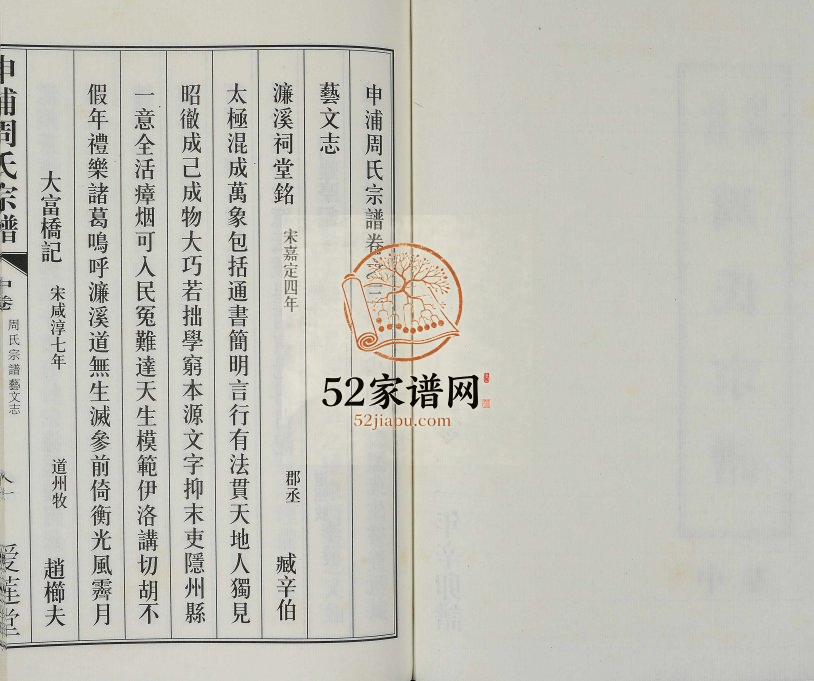 申浦周氏宗譜卷之三
藝文志
濂溪祠堂銘 宋嘉定四年 郡丞 臧辛伯
太極混成萬象包括通書簡明言行有法貫天地人獨見
昭徹成己成物大巧若拙學窮本源文字抑末吏隱州縣
一意全活瘴烟可入民冤難達天生模範伊洛講切胡不
假年禮樂諸葛嗚呼濂溪道無生滅參前倚衡光風霽月
大富橋記 宋咸淳七年 道州牧 趙櫛夫
申浦周氏宗譜
中卷 周氏宗譜藝文志
愛蓮堂
52家谱网
52jiapu.com
年辛卯譜